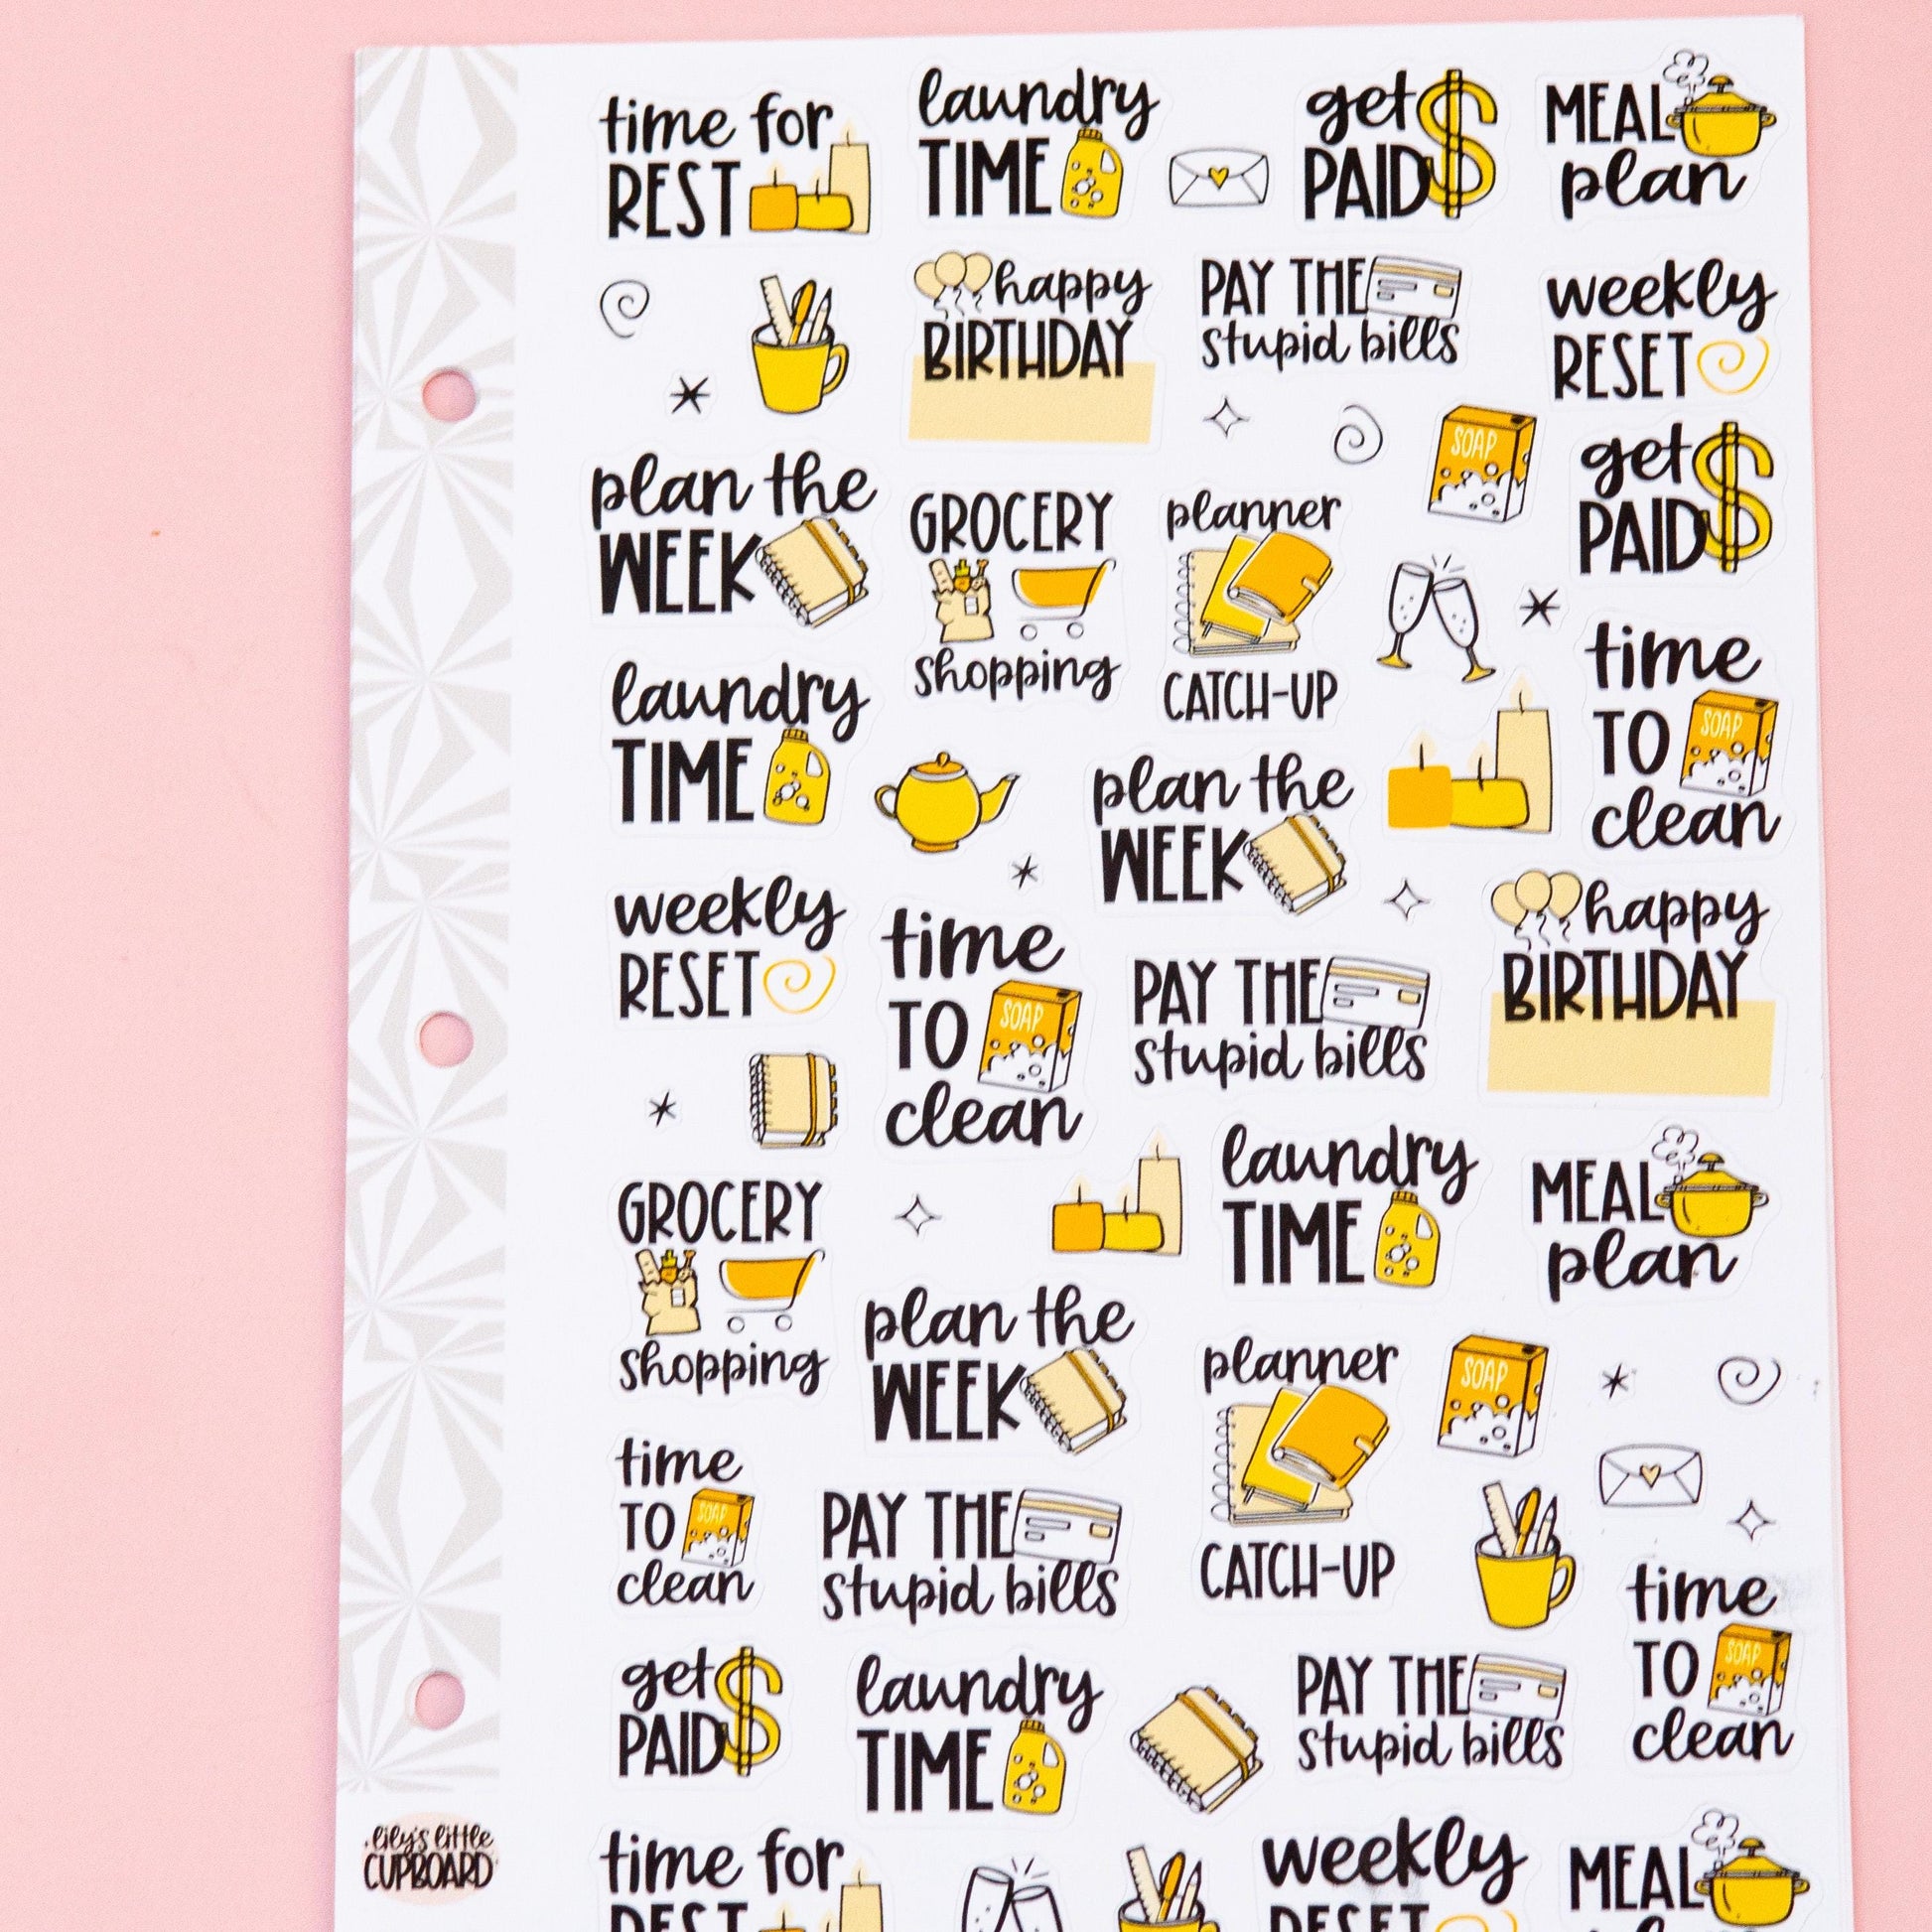 time for
REST
laundry
TIME
get
PAID
MEAL
plan
happy
BIRTHDAY
PAY THE
stupid bills
weekly
RESET
SOAP
get
PAID
plan the
WEEK
GROCERY
shopping
planner
CATCH-UP
time
TO
SOAP
clean
laundry
TIME
plan the
WEEK
weekly
RESET
time
TO
SOAP
clean
PAY THE
stupid bills
happy
BIRTHDAY
GROCERY
shopping
laundry
TIME
MEAL
plan
plan the
WEEK
planner
CATCH-UP
SOAP
time
TO
SOAP
clean
PAY THE
stupid bills
time
TO
SOAP
clean
get
PAID
laundry
TIME
PAY THE
stupid bills
lily's little
CUPBOARD
time for
REST
weekly
RESET
MEAL